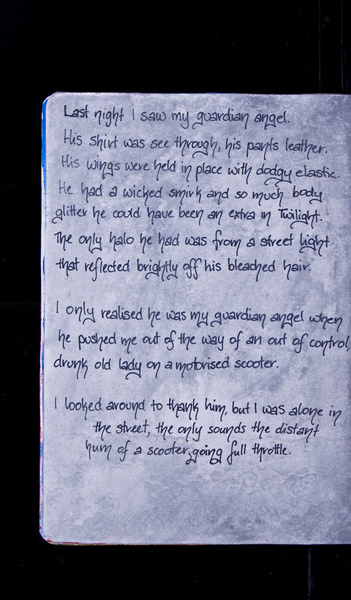 Last night I saw my guardian angel.
His shirt was see through, his pants leather.
His wings were held in place with dodgy elastic.
He had a wicked smirk and so much body
glitter he could have been an extra in Twilight.
The only halo he had was from a street light
that reflected brightly off his bleached hair.
I only realised he was my guardian angel when
he pushed me out of the way of an out of control,
drunk old lady on a motorised scooter.
I looked around to thank him, but I was alone in
the street, the only sounds the distant
hum of a scooter, going full throttle.